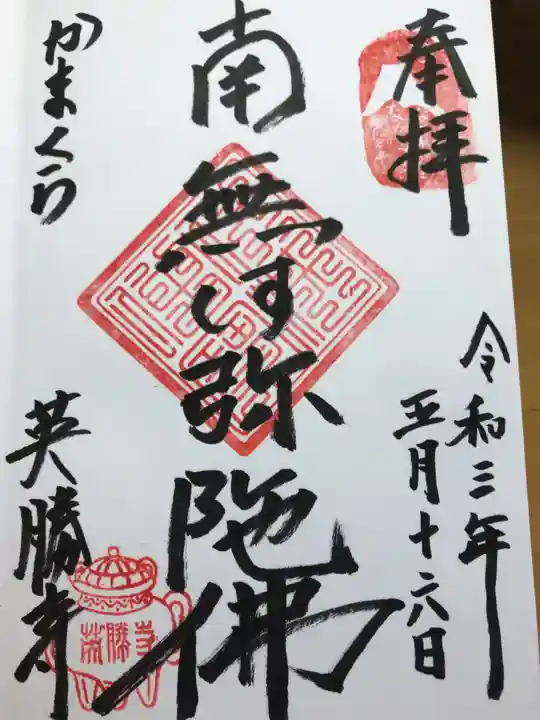 奉拝
令和三年
五月十六日
南無阿弥陀佛
かまくら
英勝寺
英勝寺